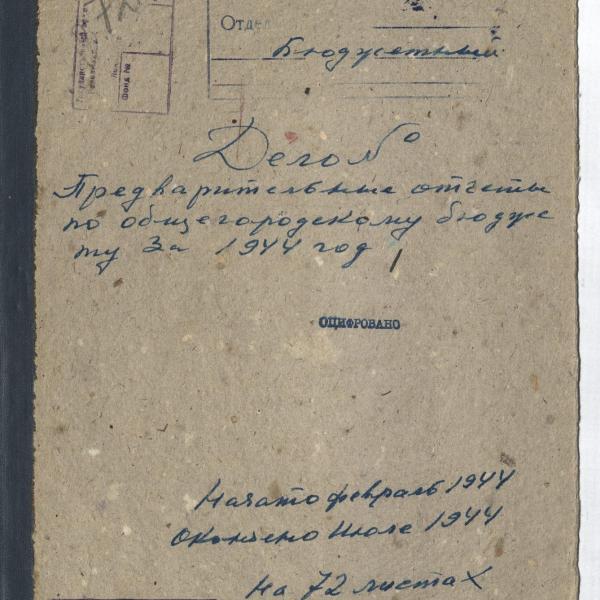 Фонд №
Отдел
Бюджетный
Дело №
Предварительные отчеты
по общегородскому бюдже
ту За 1944 год
ОЦИФРОВАНО
Начато февраль 1944
Окончено Июле 1944
На 72 листах